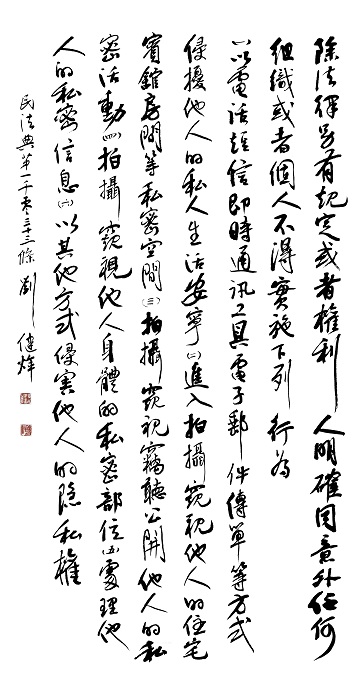 除法律另有規定或者權利人明確同意外任何
組織或者個人不得實施下列行為
㈠以電話短信即時通訊工具電子郵件傳單等方式
侵擾他人的私人生活安寧㈡進入拍攝窺視他人的住宅
賓館房間等私密空間㈢拍攝窺視竊聽公開他人的私
密活動㈣拍攝窺視他人身體的私密部位㈤處理他
人的私密信息㈥以其他方式侵害他人的隐私權
民法典第一千零三十三條劉